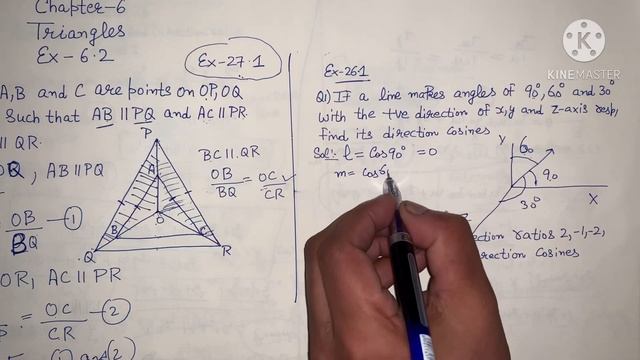 Chapter-6
Triangles
Ex-6.2
Ex-27.1
A, B and C are points on OP, OQ
Such that AB || PQ and AC || PR.
|| QR.
P
A
O
B
C
Q
R
BC || QR
OB/BQ = OC/CR
OQ, AB || PQ
OB/BQ —①
OR, AC || PR
= OC/CR —②
(i) and (2)
Ex-26.1
Q1) If a line makes angles of 90°, 60° and 30°
with the +ve direction of x, y and z-axis resp,
find its direction cosines
Sol:- l = Cos 90° = 0
m = Cos 6
Y
60
90
30°
X
ection ratios 2, -1, -2,
rection Cosines
KINEMASTER